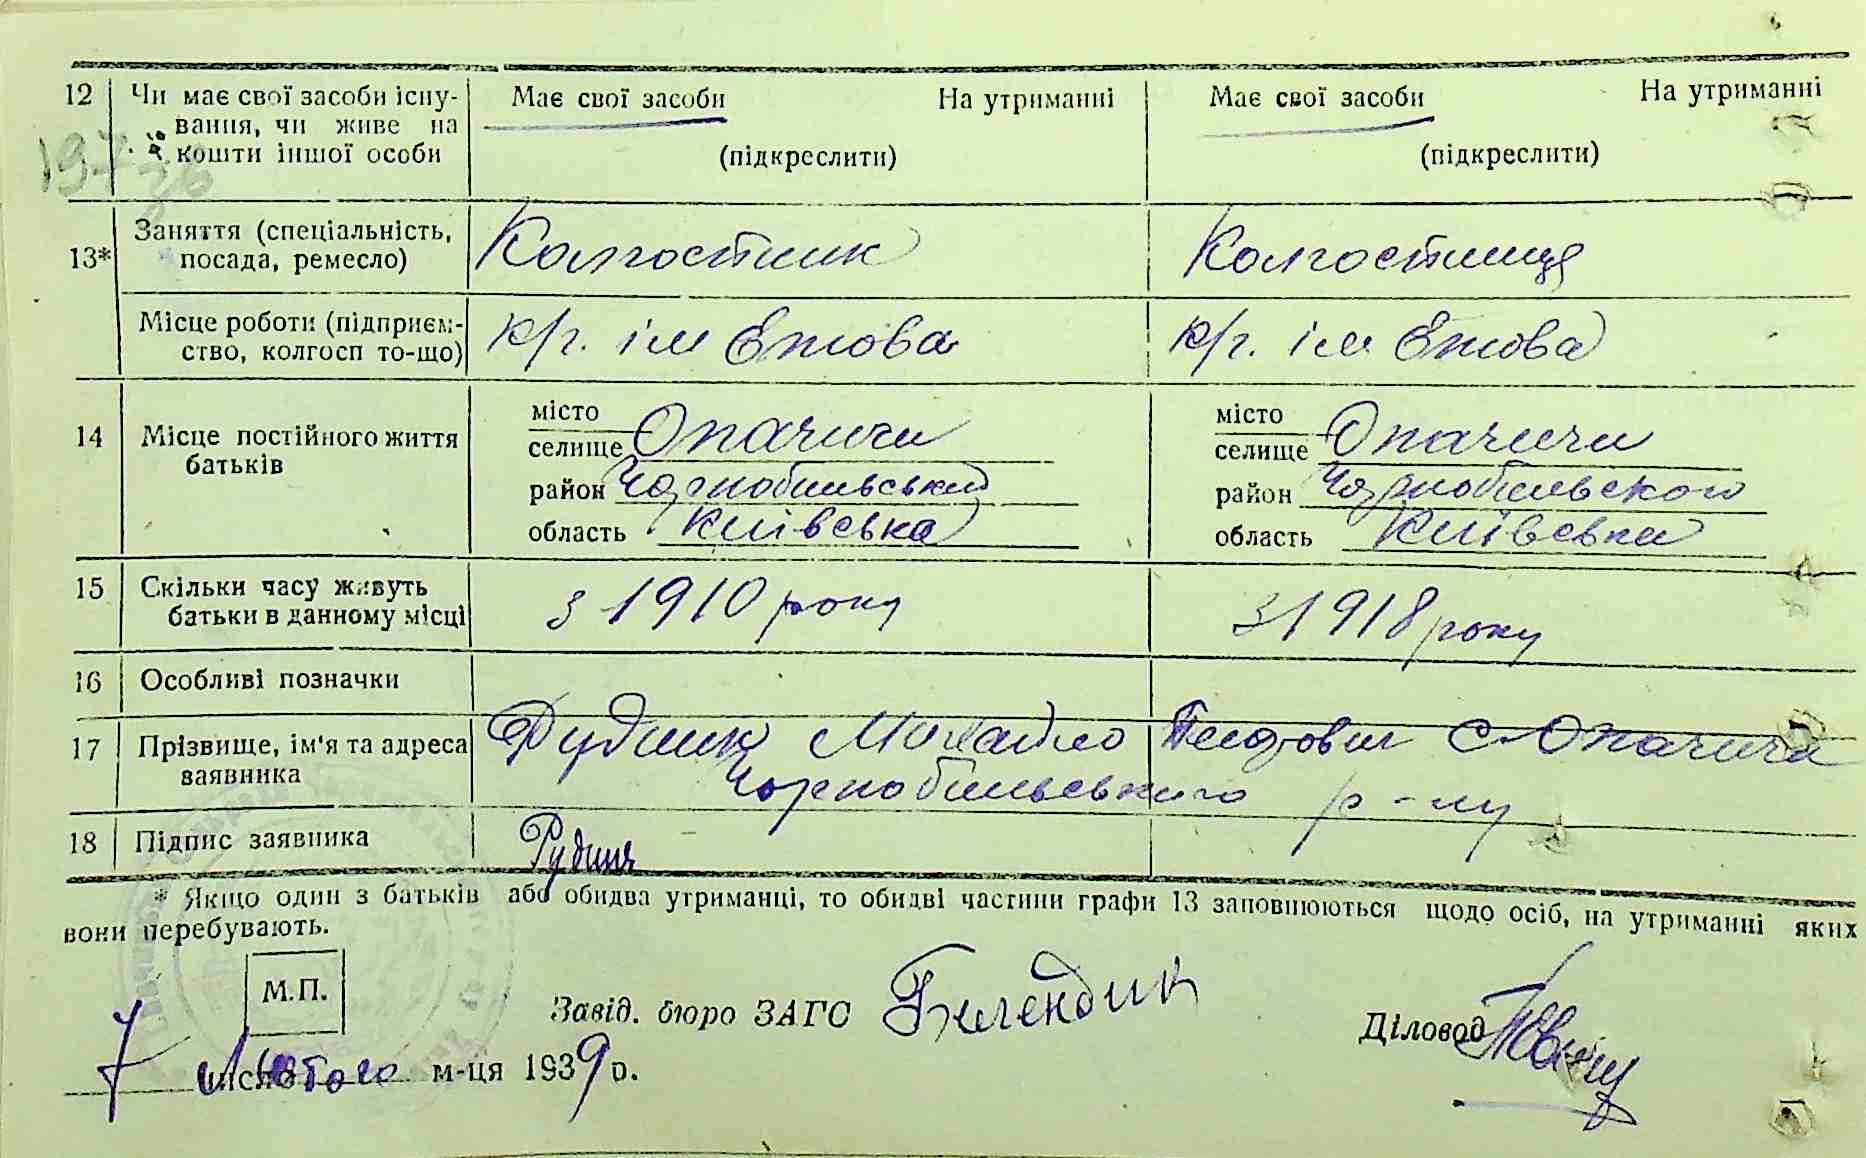 12 Чи має свої засоби існу- Має свої засоби На утриманні Має свої засоби На утриманні
вання, чи живе на
кошти іншої особи (підкреслити) (підкреслити)
13* Заняття (спеціальність, Колгоспник Колгоспниця
посада, ремесло)
Місце роботи (підприєм- к/г. ім Єжова к/г. ім Єжова
ство, колгосп то-що)
місто місто
14 Місце постійного життя селище Опачичи селище Опачичи
батьків район Чорнобильський район Чорнобильского
область Київська область Київська
15 Скільки часу живуть з 1910 року з 1918 року
батьки в данному місці
16 Особливі позначки
17 Прізвище, ім'я та адреса Рудник Михайло с. Опачичи
заявника Чорнобильського р-ну
18 Підпис заявника Рудник
* Якщо один з батьків або обидва утриманці, то обидві частини графи 13 заповнюються щодо осіб, на утриманні яких
вони перебувають.
М.П.
Завід. бюро ЗАГС
Діловод
7 числа Лютого м-ця 1939 р.